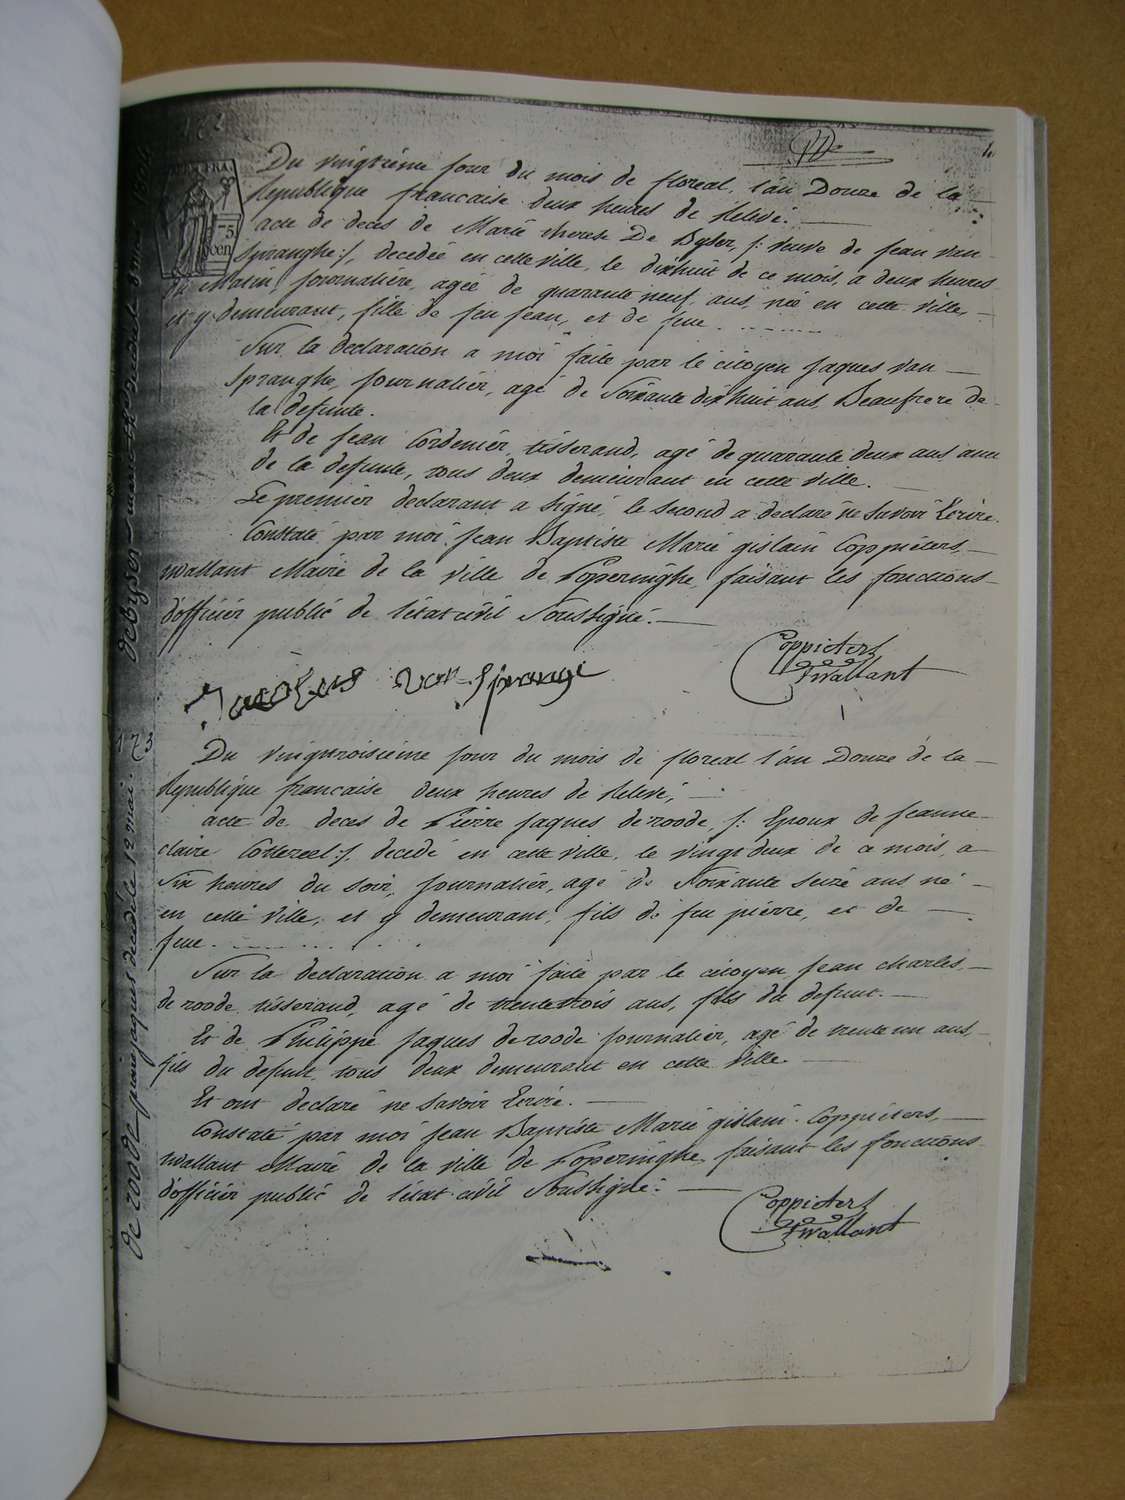 172
Du vingtiéme jour du mois de floreal, l'an Douze de la
Republique francaise deux heures de Relevé.
acte de deces de Marie therese De Byser, /: veuve de Jean van
Spranghe :/, decedée en cette ville, le dixhuit de ce mois, a deux heures
du Matin, Journaliére, agée de quarante neuf ans, née en cette ville,
et y demeurant, fille de feu Jean, et de feue . . . . . . .
Sur la declaration a moi faite par le citoyen Jaques van
Spranghe, Journaliér, agé de Soixante dix huit ans, Beaufrere de
la defunte.
Et de Jean Cordeniér, tisserand, agé de quarante deux ans ami
de la defunte, tous deux demeurant en cette ville.
Le premiér declarant a signé, le second a declaré ne savoir Ecrire.
Constaté par moi Jean Baptiste Marie gislain Coppiéters,
wallant Maire de la ville de Poperinghe, faisant les fonctions
d'officiér public de l'état civil Soussigné.
Coppieters
Twallant
Jacobus van Sprange
173
Du vingtroisiéme jour du mois de floreal l'an Douze de la
Republique francaise deux heures de Relevé,
acte de deces de Pierre Jaques de roode, /: Epoux de Jeanne
claire Cottereel :/, decedé en cette ville, le vingt deux de ce mois, a
Six heures du Soir, Journaliér, agé de Soixante Seize ans né
en cette ville, et y demeurant, fils de feu pierre, et de
feue . . . . . . .
Sur la declaration a moi faite par le citoyen Jean charles
de roode, tisserand, agé de trentetrois ans, fils du defunt.
Et de Philippe Jaques de roode Journaliér, agé de trente un ans,
fils du defunt, tous deux demeurant en cette ville.
Et ont declaré ne savoir Ecrire.
Constaté par moi Jean Baptiste Marie gislain Coppiéters,
wallant Maire de la ville de Poperinghe, faisant les fonctions
d'officiér public de l'état civil Soussigné.
Coppieters
Twallant
de roode pierre jaques decedé le 12 mai.